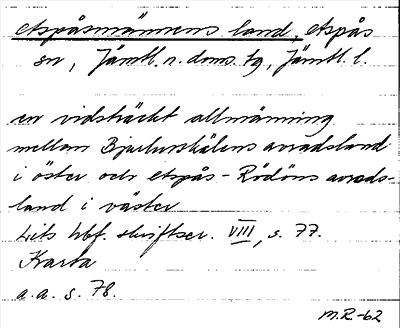 Aspåsmännens land, Aspås
sn, Jämtl. n. doms. tg, Jämtl. l.
en vidsträckt allmänning
mellan Bjärlurskälens avradsland
i öster och Aspås-Rödöns avrads-
land i väster
Lits hbf. skriftser. VIII, s. 77.
Karta
a.a. s. 78.
M.R-62